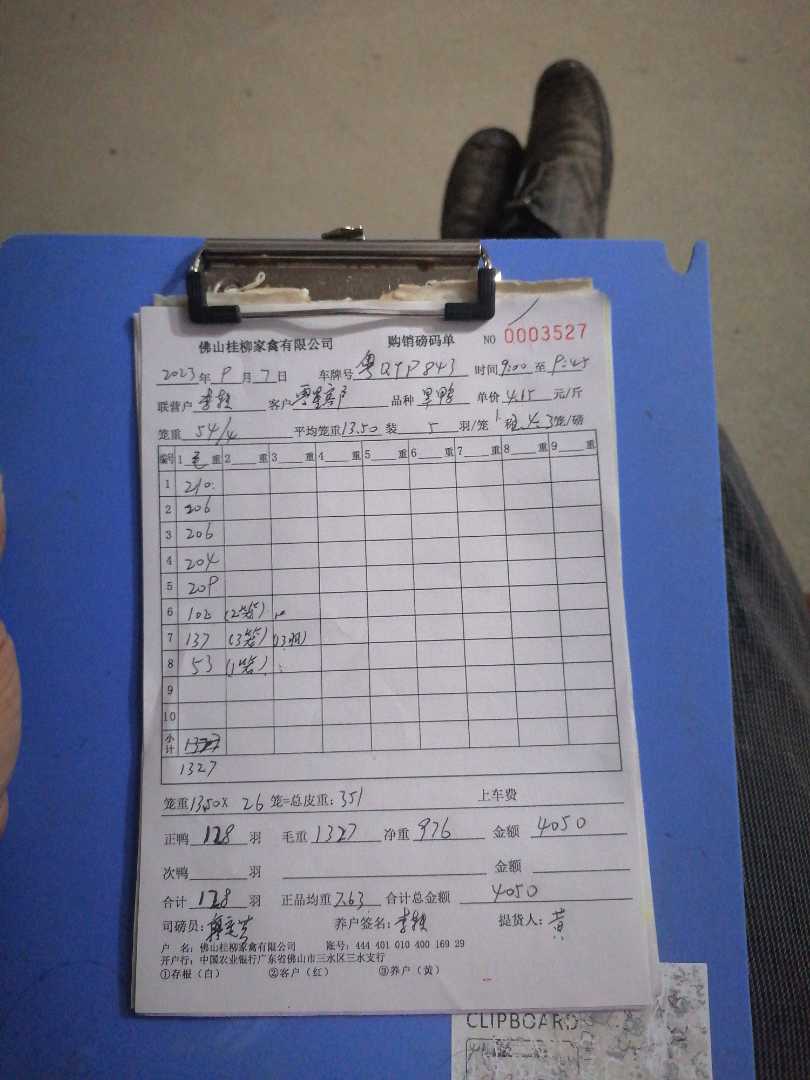 佛山桂柳家禽有限公司 购销磅码单 NO 0003527
2023年9月7日 车牌号 粤QTP843 时间9:00至9:45
联营户 李颖 客户 品种 黑鸭 单价 4.15 元/斤
笼重 54/4 平均笼重13.50 装 5 羽/笼 4-3笼/磅
编号 1毛重 2 重 3 重 4 重 5 重 6 重 7 重 8 重 9 重
1 210
2 206
3 206
4 204
5 209
6 102 (2笼)
7 137 (3笼) (13羽)
8 53 (1笼)
9
10
小计 1327
1327
笼重13.50× 26 笼=总皮重:351 上车费
正鸭 128 羽 毛重 1327 净重 976 金额 4050
次鸭 羽 金额
合计 128 羽 正品均重7.63 合计总金额 4050
司磅员: 养户签名:李颖 提货人:黄
户 名:佛山桂柳家禽有限公司 账号:444 401 010 400 169 29
开户行:中国农业银行广东省佛山市三水区三水支行
①存根(白) ②客户(红) ③养户(黄)
CLIPBOARD